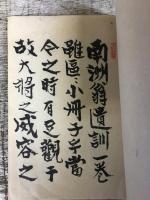 南洲翁遺訓一巻
雖區々小冊子予當
今之時有足觀于
故大將之威容之